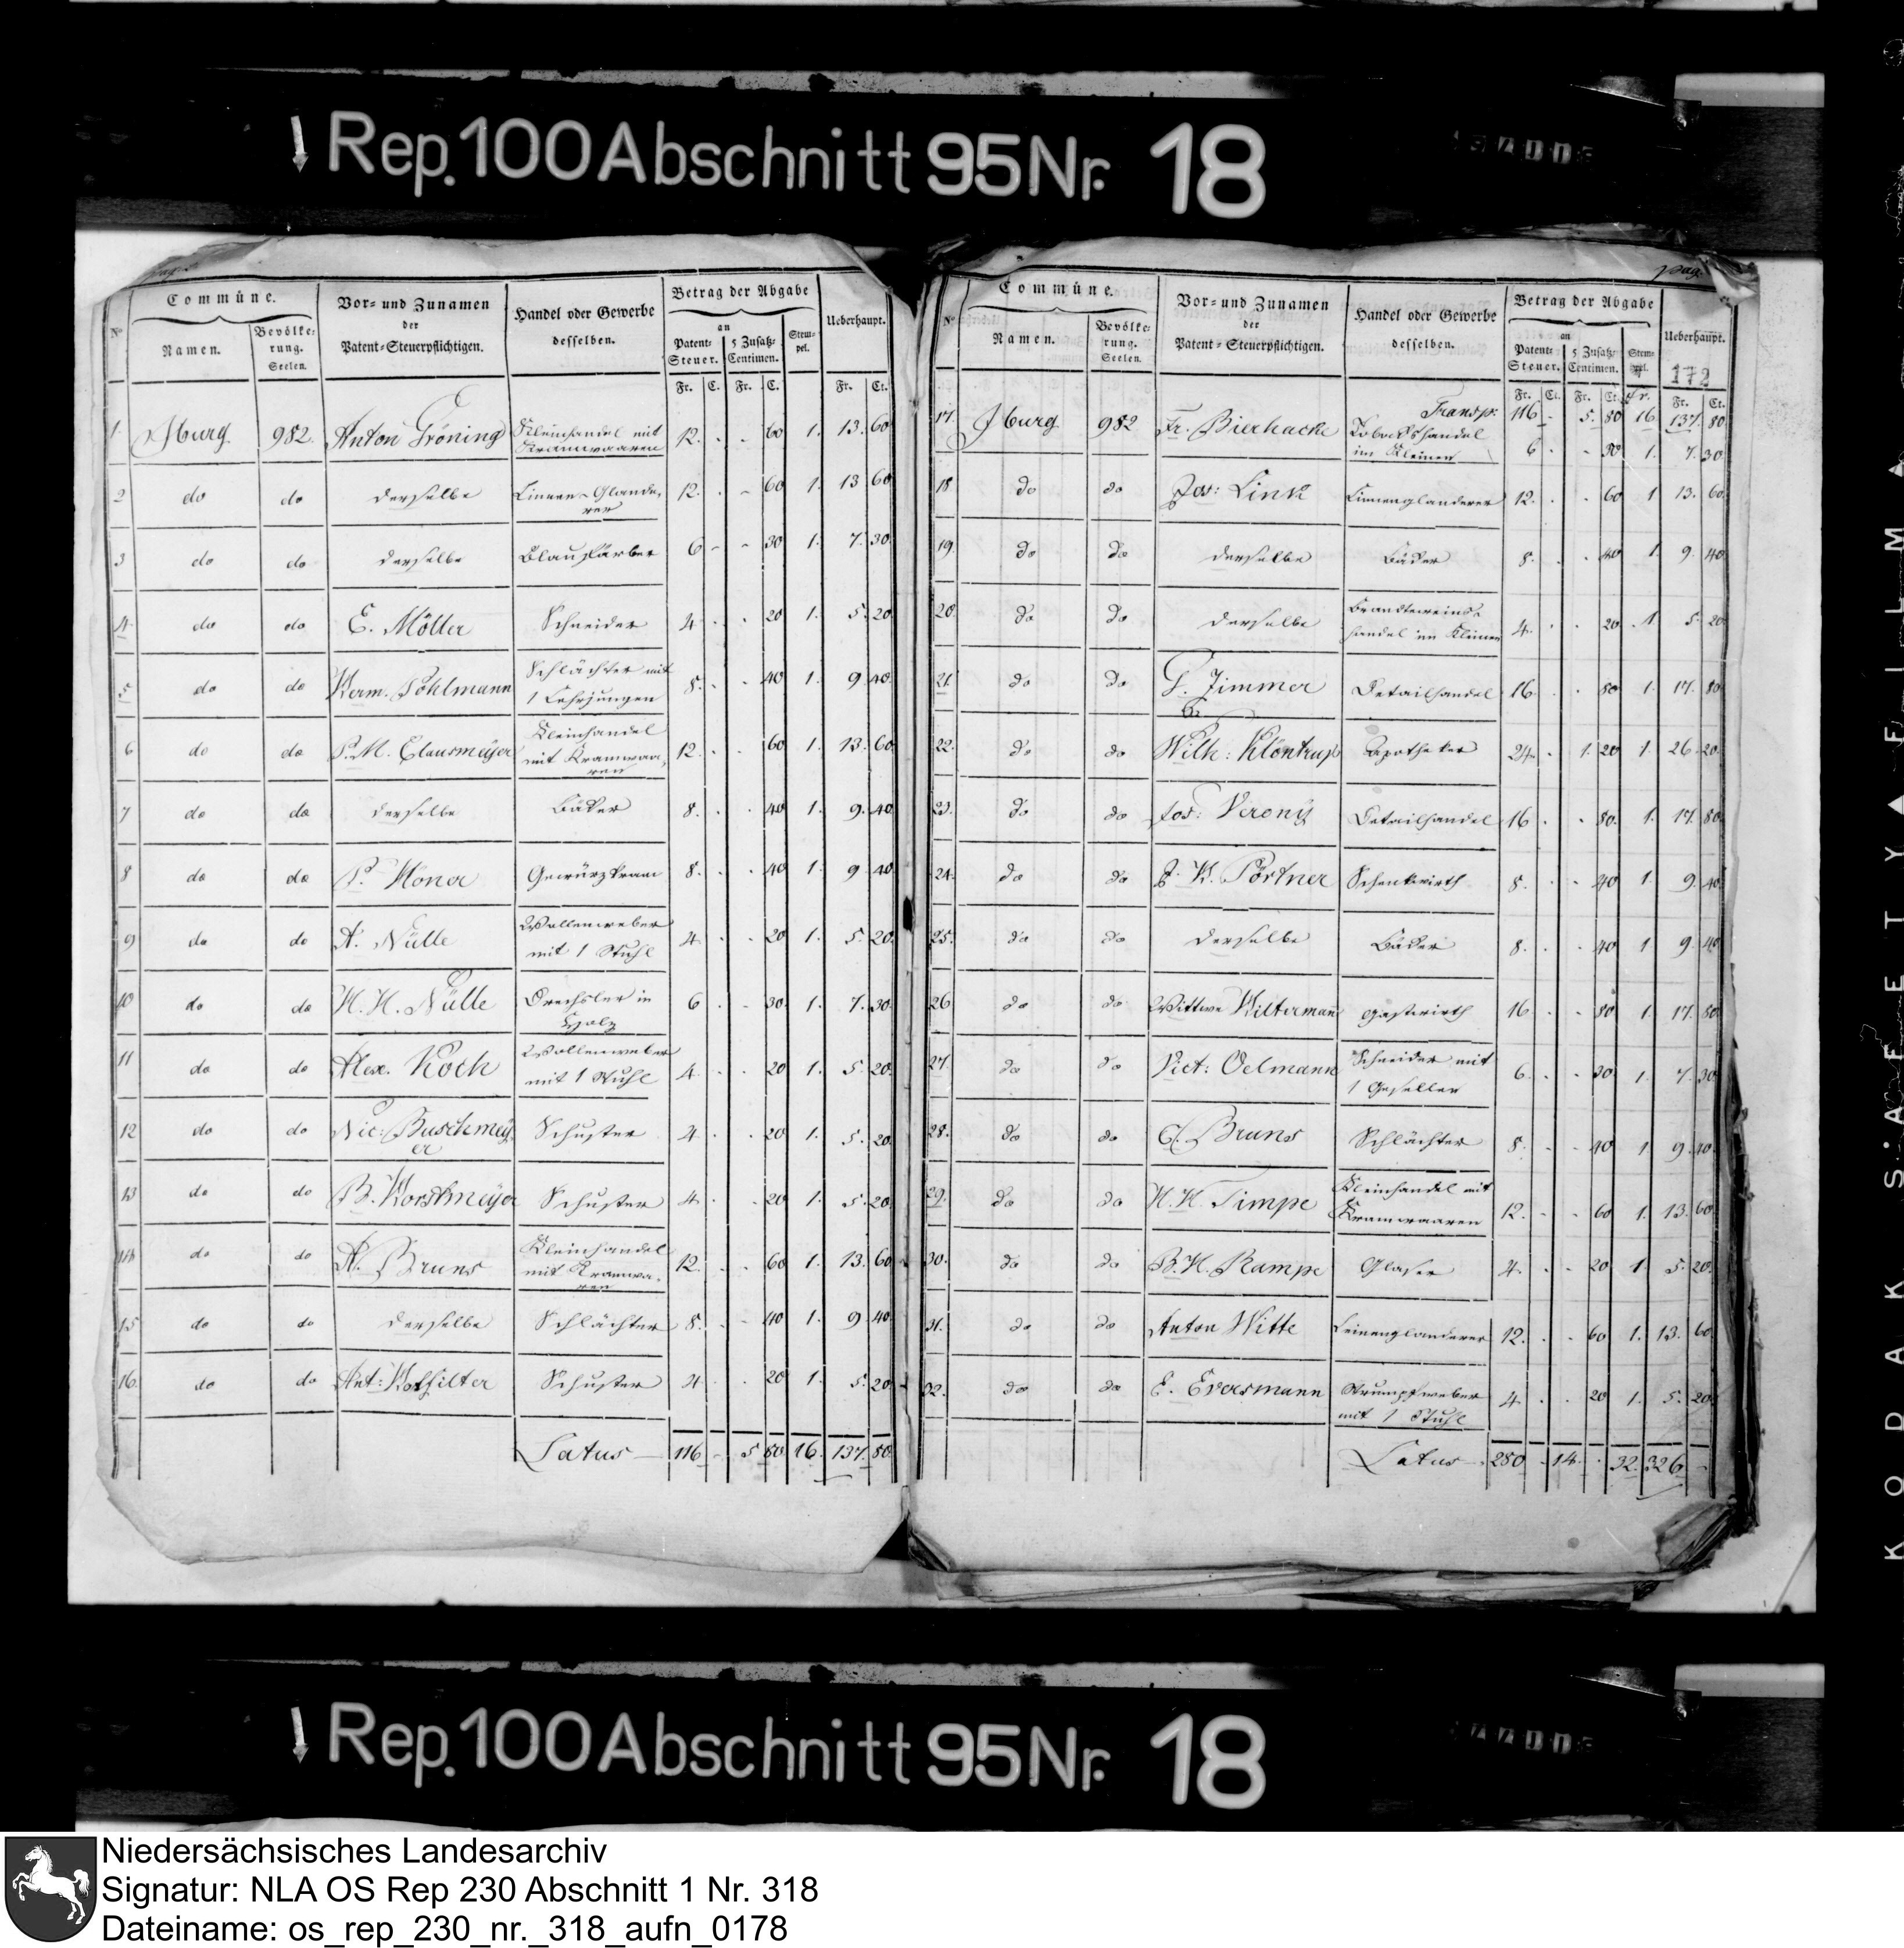 Rep. 100 Abschnitt 95 Nr. 18
Commüne. Vor= und Zunamen der Patent=Steuerpflichtigen. Handel oder Gewerbe desselben. Betrag der Abgabe Ueberhaupt.
No Namen. Bevölke= rung. Seelen. an Patent= Steuer. 5 Zusatz= Centimen. Stem= pel.
Fr. C. Fr. C. Fr. Ct.
1. Iburg 982. Anton Gröning Kleinhandel mit Kramwaaren 12. - - 60 1. 13. 60
2 do do derselbe Linnen-Glande, rer 12. - - 60 1. 13 60
3 do do derselbe Blaufärber 6 - - 30 1. 7. 30
4. do do E. Möller Schneider 4 - - 20 1. 5. 20
5 do do Herm. Pohlmann Schlächter mit 1 Lehrjungen 8. - - 40 1. 9. 40
6 do do P.M. Clausmeÿer Kleinhandel mit Kramwaa, ren 12. - - 60 1. 13. 60
7 do do derselbe Bäcker 8. - - 40 1. 9. 40
8 do do P. Honer Gewürzkram 8. - - 40 1. 9 40
9 do do A. Nülle Wollenweber mit 1 Stuhl 4 - - 20 1. 5. 20
10 do do H. H. Nülle Drechsler in Holz 6 - - 30 1. 7. 30
11 do do Alex. Koch Wollenweber mit 1 Stuhl 4. - - 20 1. 5. 20
12 do do Nic: Buschmeÿ er Schuster 4 - - 20 1. 5. 20
13 do do B. Horstmeÿer Schuster 4. - - 20 1. 5. 20
14 do do A. Bruns Kleinhandel mit Kramwa, ren 12. - - 60 1. 13. 60
15 do do derselbe Schlächter 8. - - 40 1. 9 40
16. do do Ant: Schuster 4 - - 20 1. 5. 20
Latus 116 - 5 80 16. 137. 80
pag.
Commüne. Vor= und Zunamen der Patent=Steuerpflichtigen. Handel oder Gewerbe desselben. Betrag der Abgabe Ueberhaupt.
No Namen. Bevölke= rung. Seelen. an Patent= Steuer. 5 Zusatz= Centimen. Stem= pel. 172
Fr. Ct. Fr. Ct. Fr. Fr. Ct.
Transp: 116 - 5. 80 16 137. 80
17. Iburg 982 Fr. Bierhacke Tobackshandel im Kleinen 6 - - 30 1. 7. 30
18 do do Jos: Link Linnenglanderer 12. - - 60 1 13. 60
19. do do derselbe Bäcker 8. - - 40 1. 9. 40
20. do do derselbe Brandteweins, handel im Kleinen 4. - - 20 1 5. 20
21 do do Zimmer Detailhandel 16 - - 80 1. 17. 80
22. do do Wilh: Klöntrup Apotheker 24 - 1. 20 1. 26. 20
23. do do Jos: Veronÿ Detailhandel 16 - - 80. 1. 17. 80
24. do do H. Pörtner Schenkwirth 8. - - 40 1. 9. 40
25. do do derselbe Bäcker 8. - - 40 1 9. 40
26 do do Wittwe Wiltermann Gastwirth 16 - - 80 1. 17. 80
27. do do Vict: Oelmann Schneider mit 1 Gesellen 6. - - 30 1. 7. 30
28. do do C. Bruns Schlächter 8. - - 40 1 9. 40
29. do do H. H. Timpe Kleinhandel mit Kramwaaren 12. - - 60 1. 13. 60
30. do do B. H. Rampe Glaser 4. - - 20 1 5. 20.
31. do do Anton Witte Leinenglanderer 12. - - 60 1. 13. 60
32. do do E. Eversmann Strumpfweber mit 1 Stuhl 4 - - 20 1. 5. 20
Latus 280 - 14. - 32. 326 -
Rep. 100 Abschnitt 95 Nr. 18
KODAK SAFETY FILM
Niedersächsisches Landesarchiv
Signatur: NLA OS Rep 230 Abschnitt 1 Nr. 318
Dateiname: os_rep_230_nr._318_aufn_0178